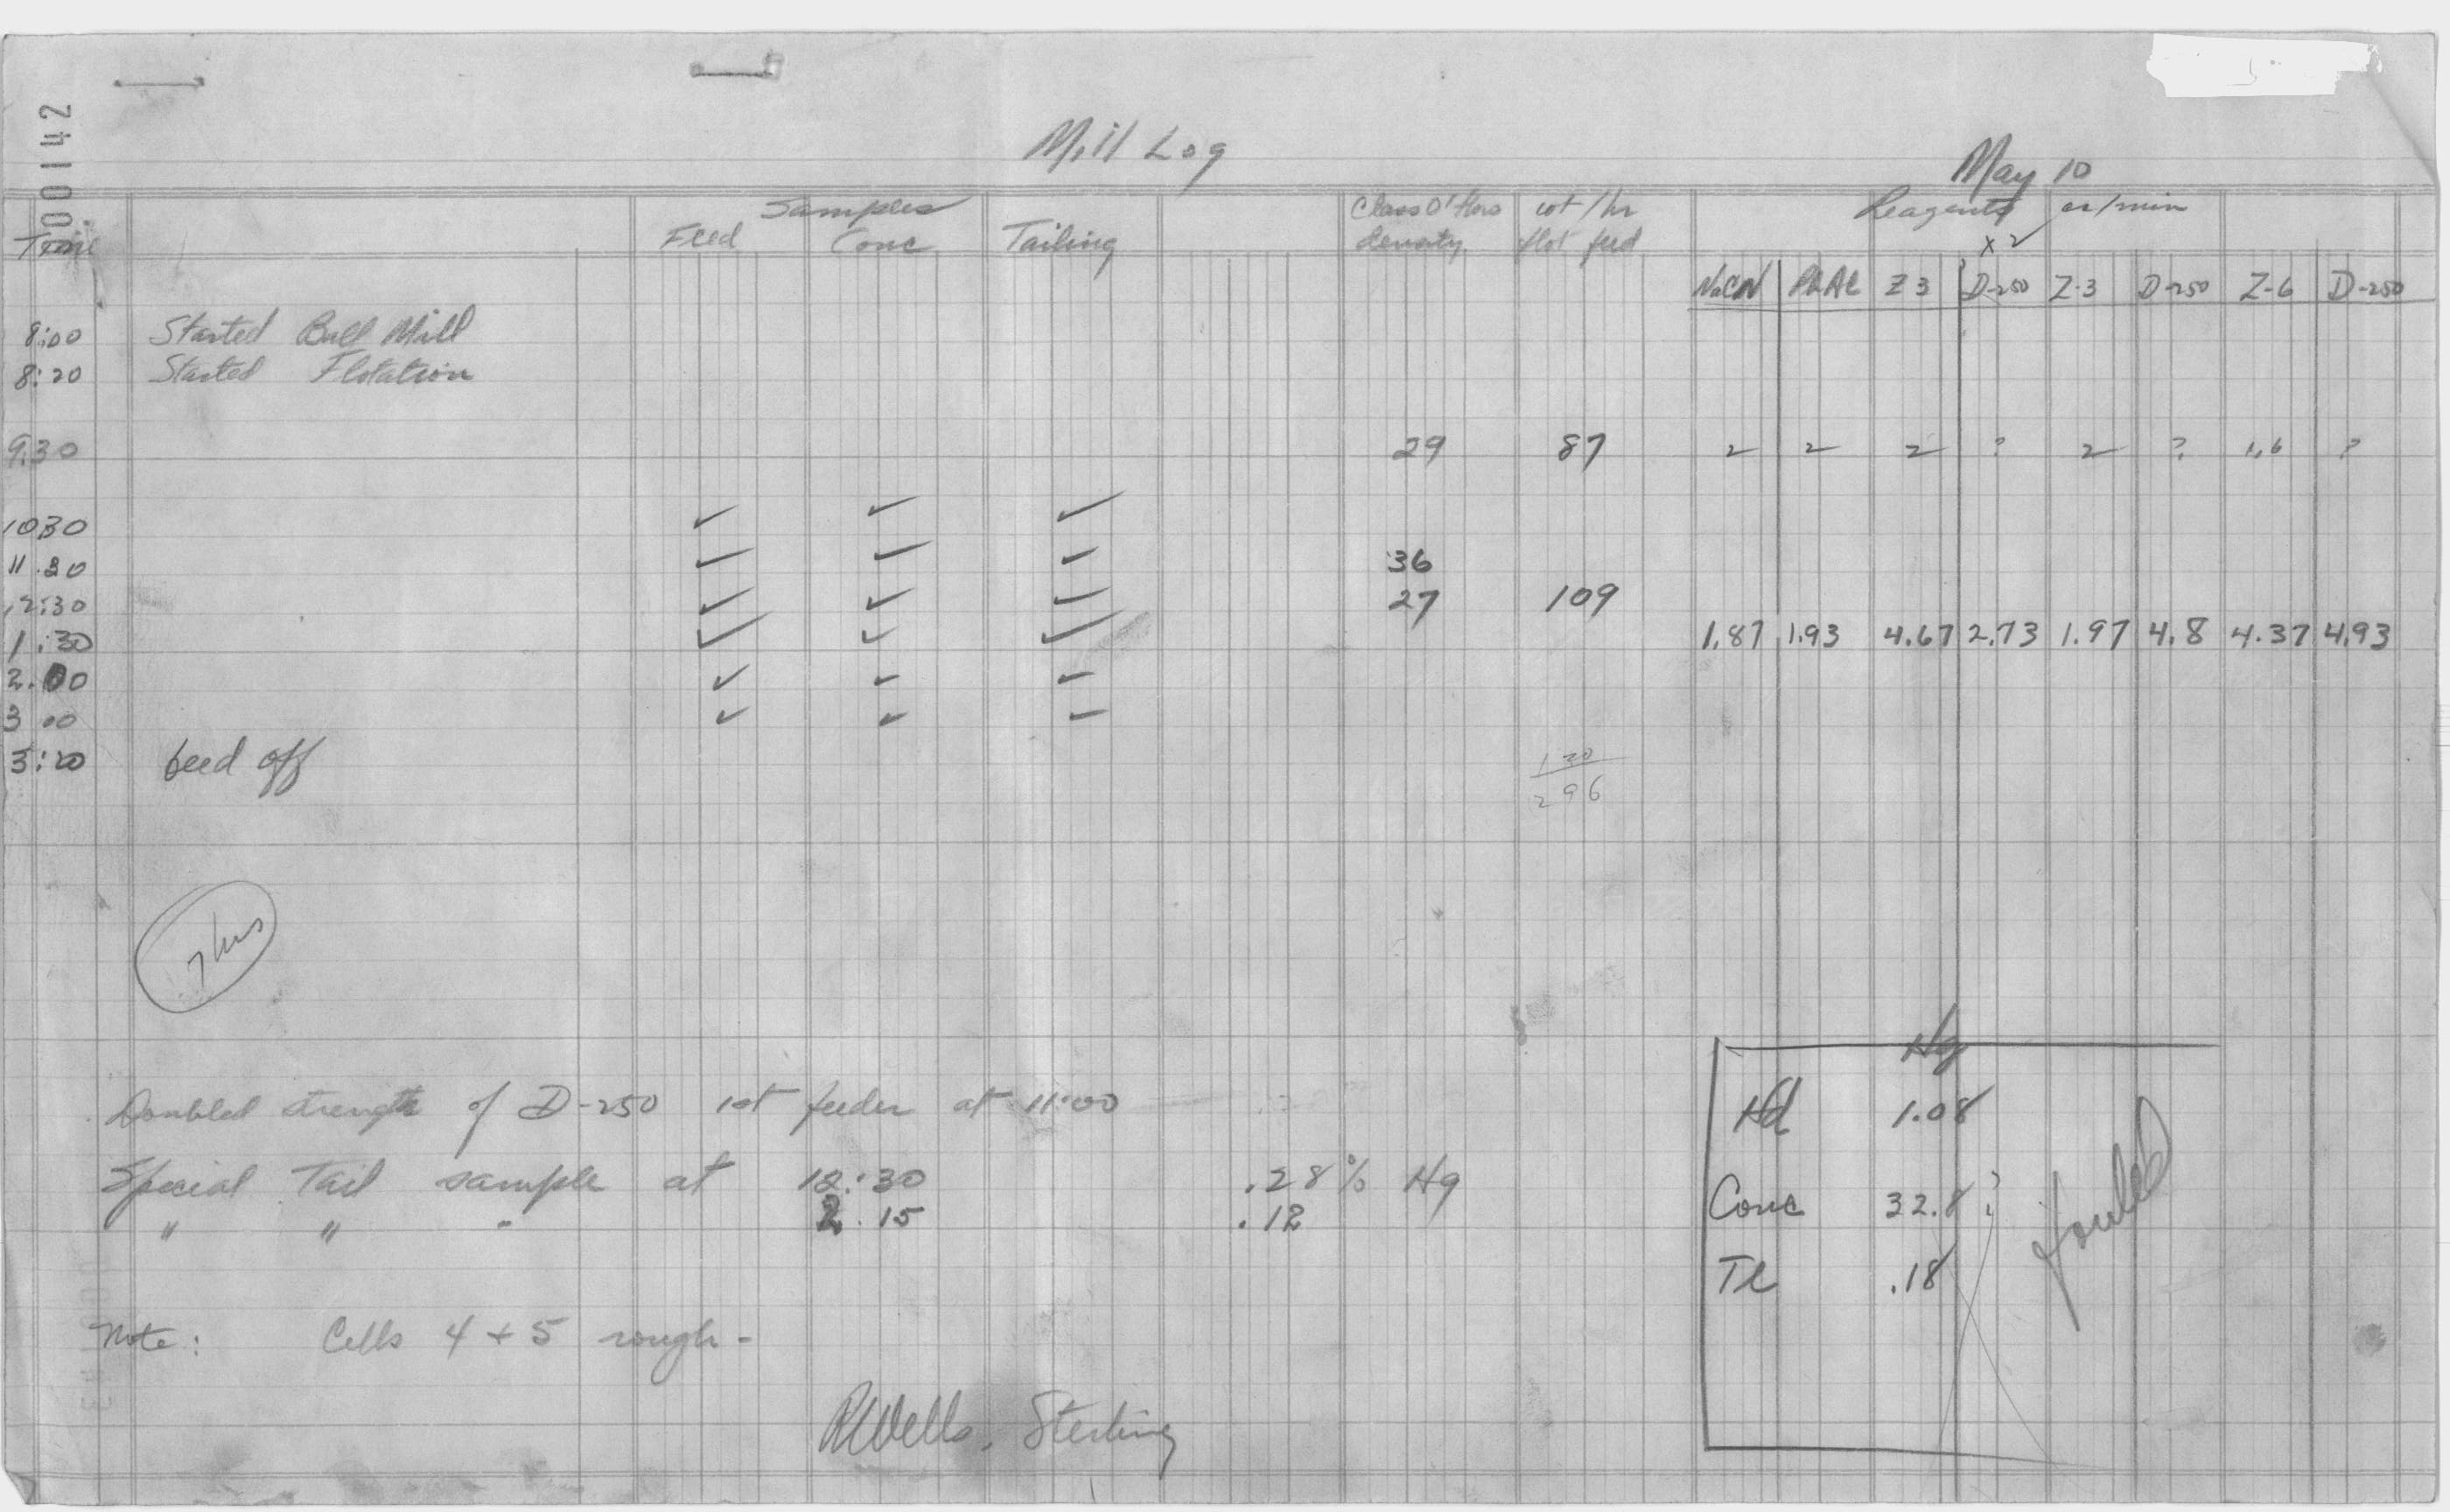 00142
Mill Log
May 10
Time Samples Class O'flow wt/hr Reagents cc/min
Feed Conc Tailing density flot feed x2
NaCN Z3 D-250 Z-3 D-250 Z-6 D-250
8:00 Started Ball Mill
8:20 Started Flotation
9:30 29 87 2 2 2 ? 2 ? 1.6 ?
10:30 ✓ ✓ ✓
11:30 ✓ ✓ ✓ 36
12:30 ✓ ✓ ✓ 27 109
1:30 ✓ ✓ ✓ 1.87 1.93 4.67 2.73 1.97 4.8 4.37 4.93
2.00 ✓ ✓ ✓
3 00 ✓ ✓ ✓
3:20 feed off 130
296
7 hrs
Hg
Doubled strength of D-250 1st feeder at 11:00 Hd 1.08
Special Tail sample at 12:30 .28% Hg Conc 32.8 ?
" " " 2.15 .12
Tl .18
Note: Cells 4 + 5 rough -
RWells, Sterling